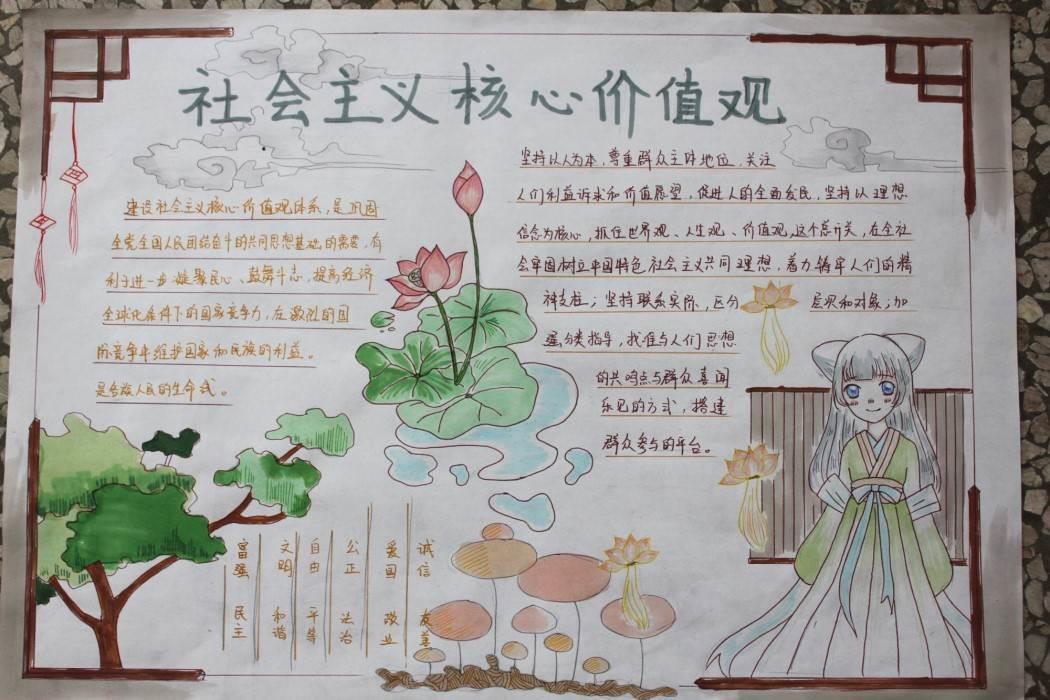 社会主义核心价值观
建设社会主义核心价值观体系，是巩固
全党全国人民团结奋斗的共同思想基础的需要，有
利于进一步凝聚民心、鼓舞斗志，提高经济
全球化条件下的国家竞争力，在激烈的国
际竞争中维护国家和民族的利益。
是各族人民的生命线。
坚持以人为本，尊重群众主体地位，关注
人们利益诉求和价值愿望，促进人的全面发展，坚持以理想
信念为核心，抓住世界观、人生观、价值观，这个总开关，在全社
会牢固树立中国特色社会主义共同理想，着力铸牢人们的精
神支柱；坚持联系实际，区分层次和对象；加
强分类指导，找准与人们思想
的共鸣点与群众喜闻
乐见的方式，搭建
群众参与的平台。
富强 民主
文明 和谐
自由 平等
公正 法治
爱国 敬业
诚信 友善